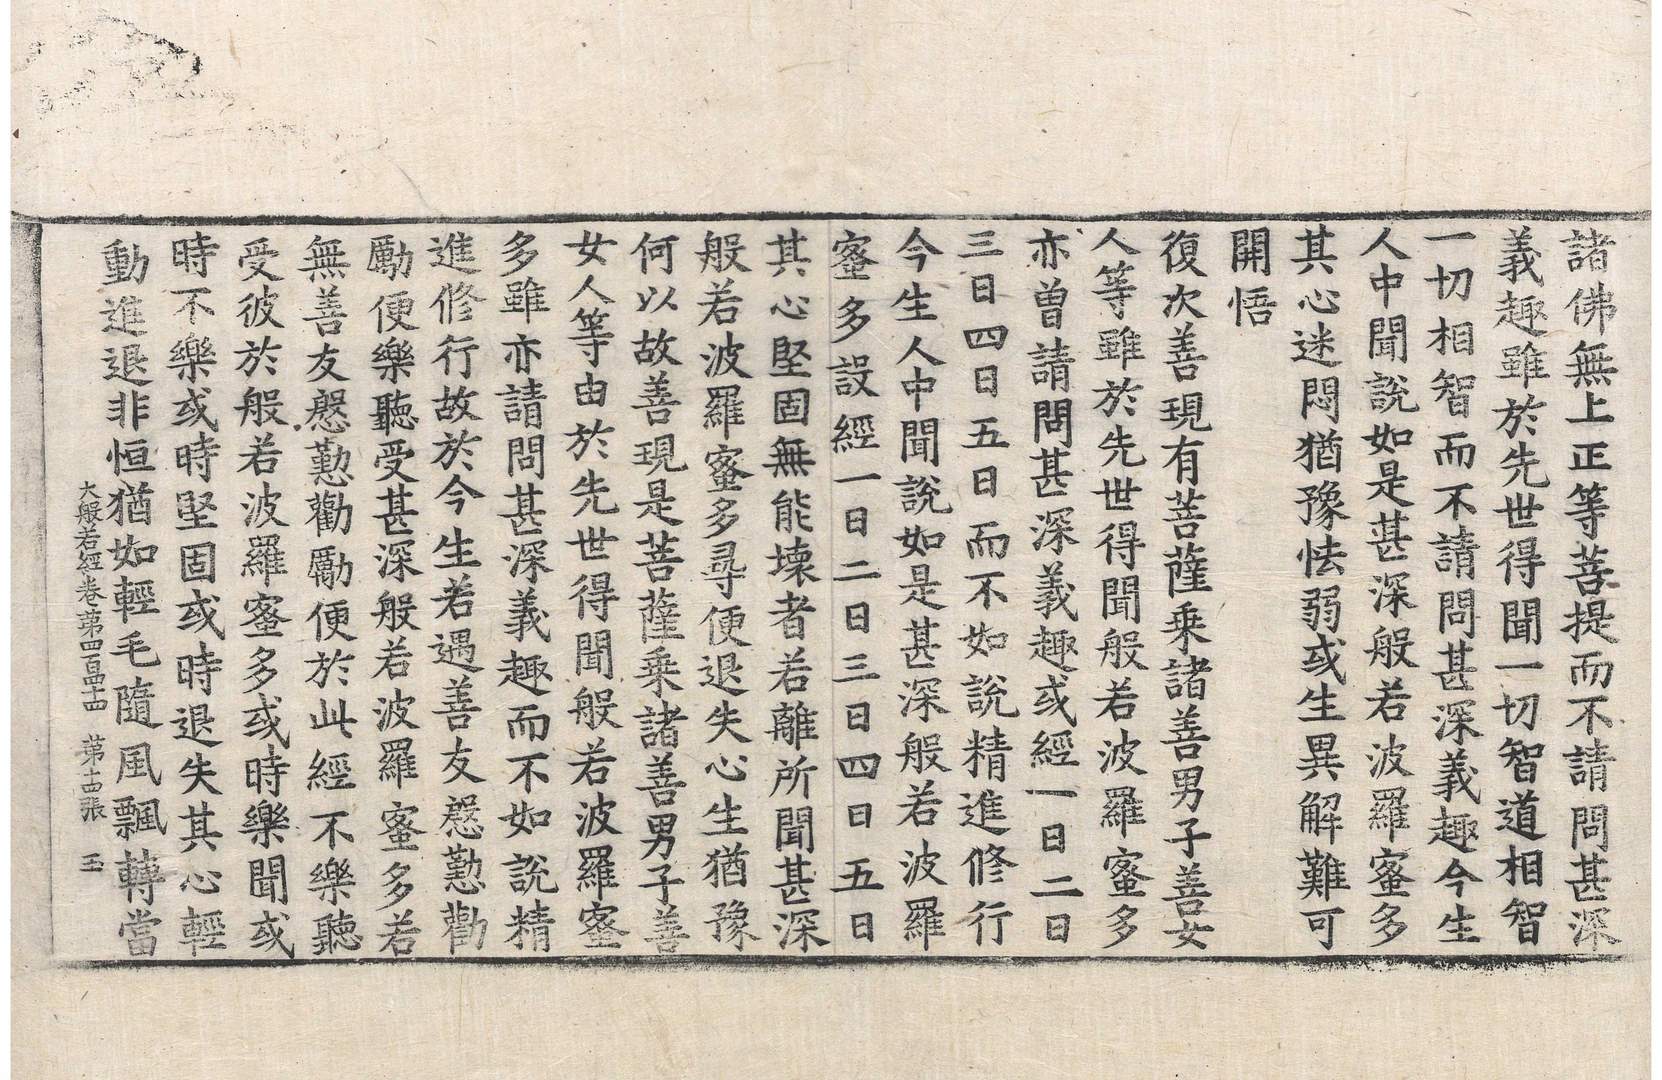 諸佛無上正等菩提而不請問甚深
義趣雖於先世得聞一切智道相智
一切相智而不請問甚深義趣今生
人中聞說如是甚深般若波羅蜜多
其心迷悶猶豫怯弱或生異解難可
開悟
復次善現有菩薩乘諸善男子善女
人等雖於先世得聞般若波羅蜜多
亦曾請問甚深義趣或經一日二日
三日四日五日而不如說精進修行
今生人中聞說如是甚深般若波羅
蜜多設經一日二日三日四日五日
其心堅固無能壞者若離所聞甚深
般若波羅蜜多尋便退失心生猶豫
何以故善現是菩薩乘諸善男子善
女人等由於先世得聞般若波羅蜜
多雖亦請問甚深義趣而不如說精
進修行故於今生若遇善友慇懃勸
勵便樂聽受甚深般若波羅蜜多若
無善友慇懃勸勵便於此經不樂聽
受彼於般若波羅蜜多或時樂聞或
時不樂或時堅固或時退失其心輕
動進退非恒猶如輕毛隨風飄轉當
大般若經卷第四百四十四 第十四張 玉